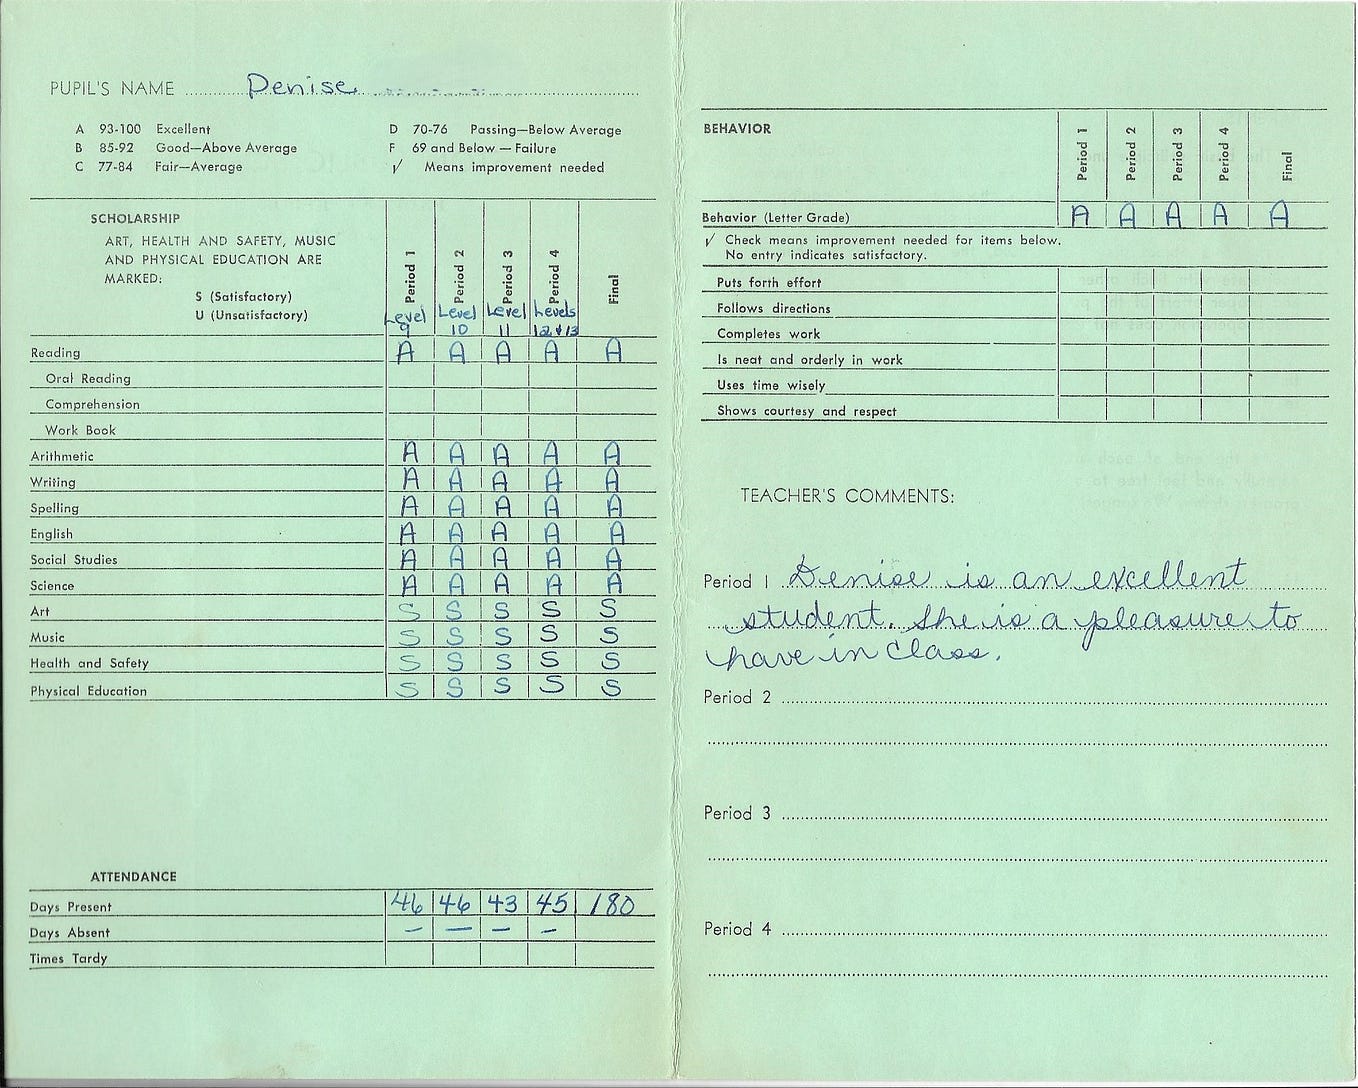 PUPIL'S NAME Denise
A 93-100 Excellent
B 85-92 Good—Above Average
C 77-84 Fair—Average
D 70-76 Passing—Below Average
F 69 and Below — Failure
√ Means improvement needed
SCHOLARSHIP
ART, HEALTH AND SAFETY, MUSIC
AND PHYSICAL EDUCATION ARE
MARKED:
S (Satisfactory)
U (Unsatisfactory)
Period 1 Period 2 Period 3 Period 4 Final
Level Level Level Levels
9 10 11 12 & 13
Reading A A A A A
Oral Reading
Comprehension
Work Book
Arithmetic A A A A A
Writing A A A A A
Spelling A A A A A
English A A A A A
Social Studies A A A A A
Science A A A A A
Art S S S S S
Music S S S S S
Health and Safety S S S S S
Physical Education S S S S S
ATTENDANCE
Days Present 46 46 43 45 180
Days Absent — — — —
Times Tardy
BEHAVIOR Period 1 Period 2 Period 3 Period 4 Final
Behavior (Letter Grade) A A A A A
√ Check means improvement needed for items below.
No entry indicates satisfactory.
Puts forth effort
Follows directions
Completes work
Is neat and orderly in work
Uses time wisely
Shows courtesy and respect
TEACHER'S COMMENTS:
Period 1 Denise is an excellent
student. She is a pleasure to
have in class.
Period 2
Period 3
Period 4